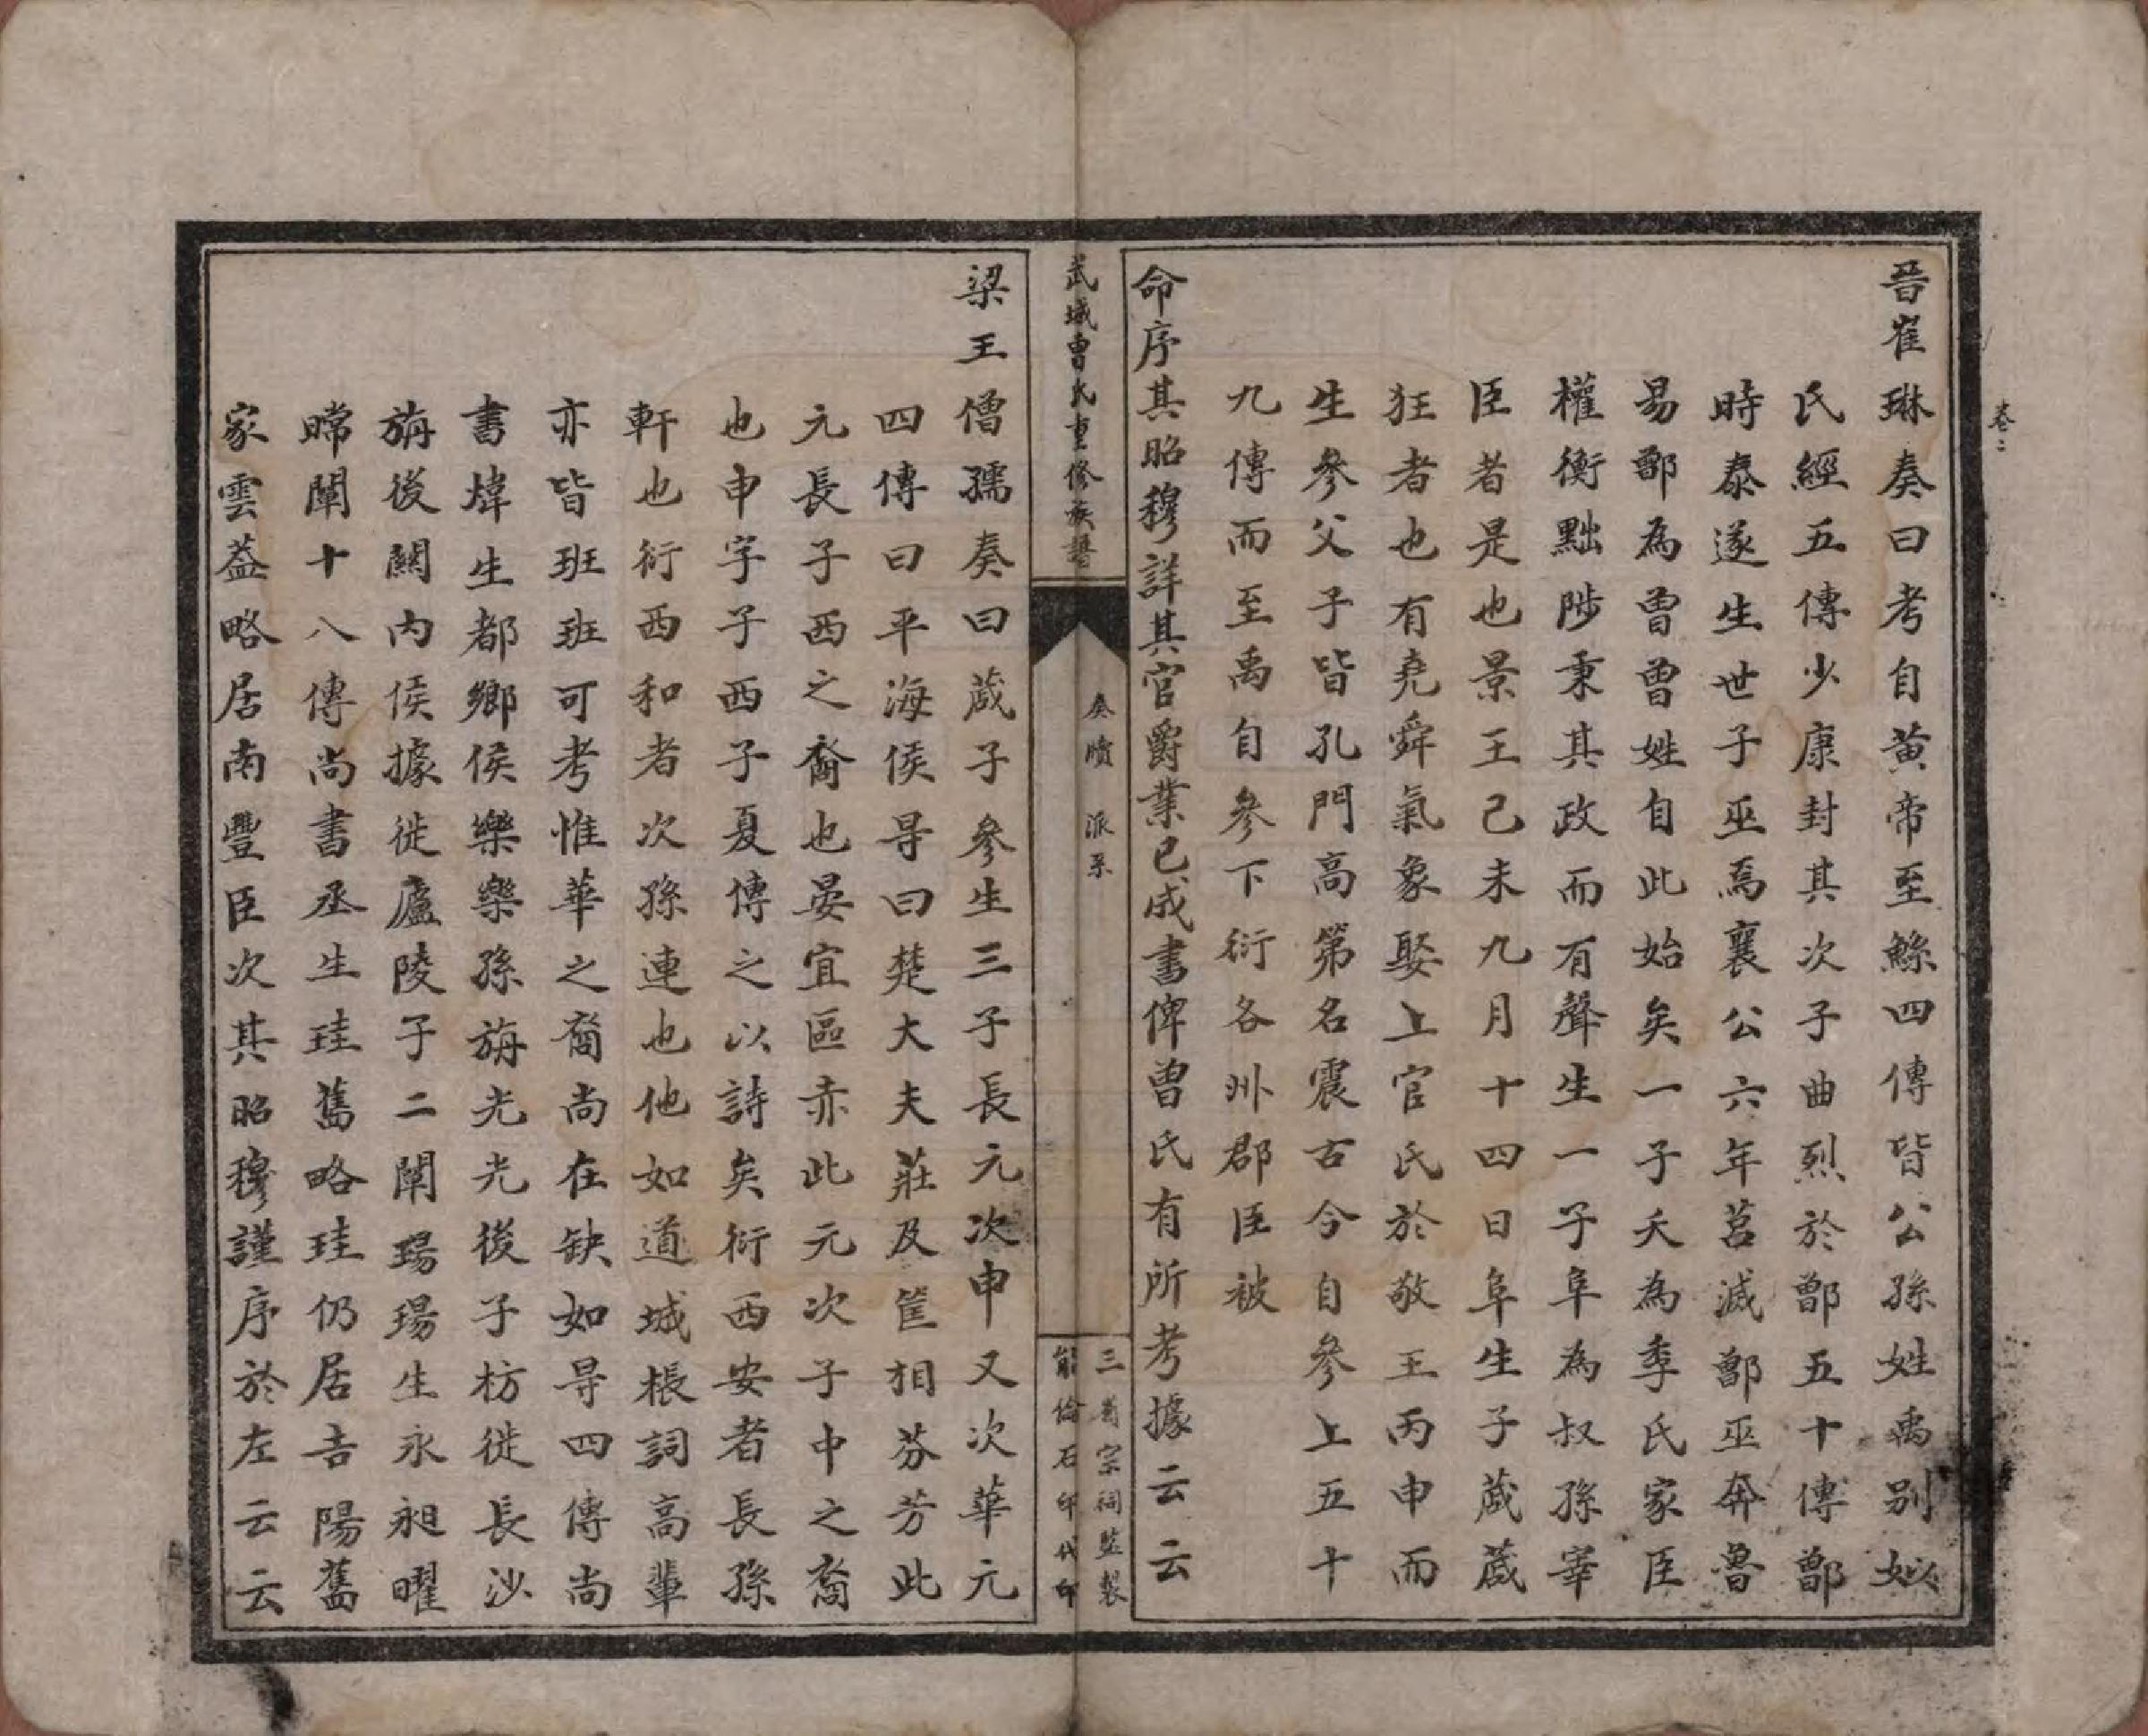 晉崔琳奏曰考自黃帝至鯀四傳皆公孫姓禹別姒
氏經五傳少康封其次子曲烈於鄫五十傳鄫
時泰遂生世子巫焉襄公六年莒滅鄫巫奔魯
易鄫為曾曾姓自此始矣一子夭為季氏家臣
權衡黜陟秉其政而有聲生一子阜為叔孫宰
臣者是也景王己未九月十四日阜生子蒧蒧
狂者也有堯舜氣象娶上官氏於敬王丙申而
生參父子皆孔門高第名震古今自參上五十
九傳而至禹自參下衍各州郡臣被
命序其昭穆詳其官爵業已成書俾曾氏有所考據云云
卷二
武城曾氏重修族譜
奏牘 派系
三省宗祠監製
能倫石印代印
梁王僧孺奏曰蒧子參生三子長元次申又次華元
四傳曰平海侯㝵曰楚大夫莊及筐相芬芳此
元長子西之裔也晏宜區赤此元次子中之裔
也申字子西子夏傳之以詩矣衍西安者長孫
軒也衍西和者次孫連也他如道城棖詞高輩
亦皆班班可考惟華之裔尚在缺如㝵四傳尚
書煒生都鄉侯樂樂孫旃光光後子枋徙長沙
旃後關內侯據徙廬陵子二闡瑒瑒生永昶曜
嘗闡十八傳尚書丞生珪舊略珪仍居吉陽舊
家雲蓋略居南豐臣次其昭穆謹序於左云云